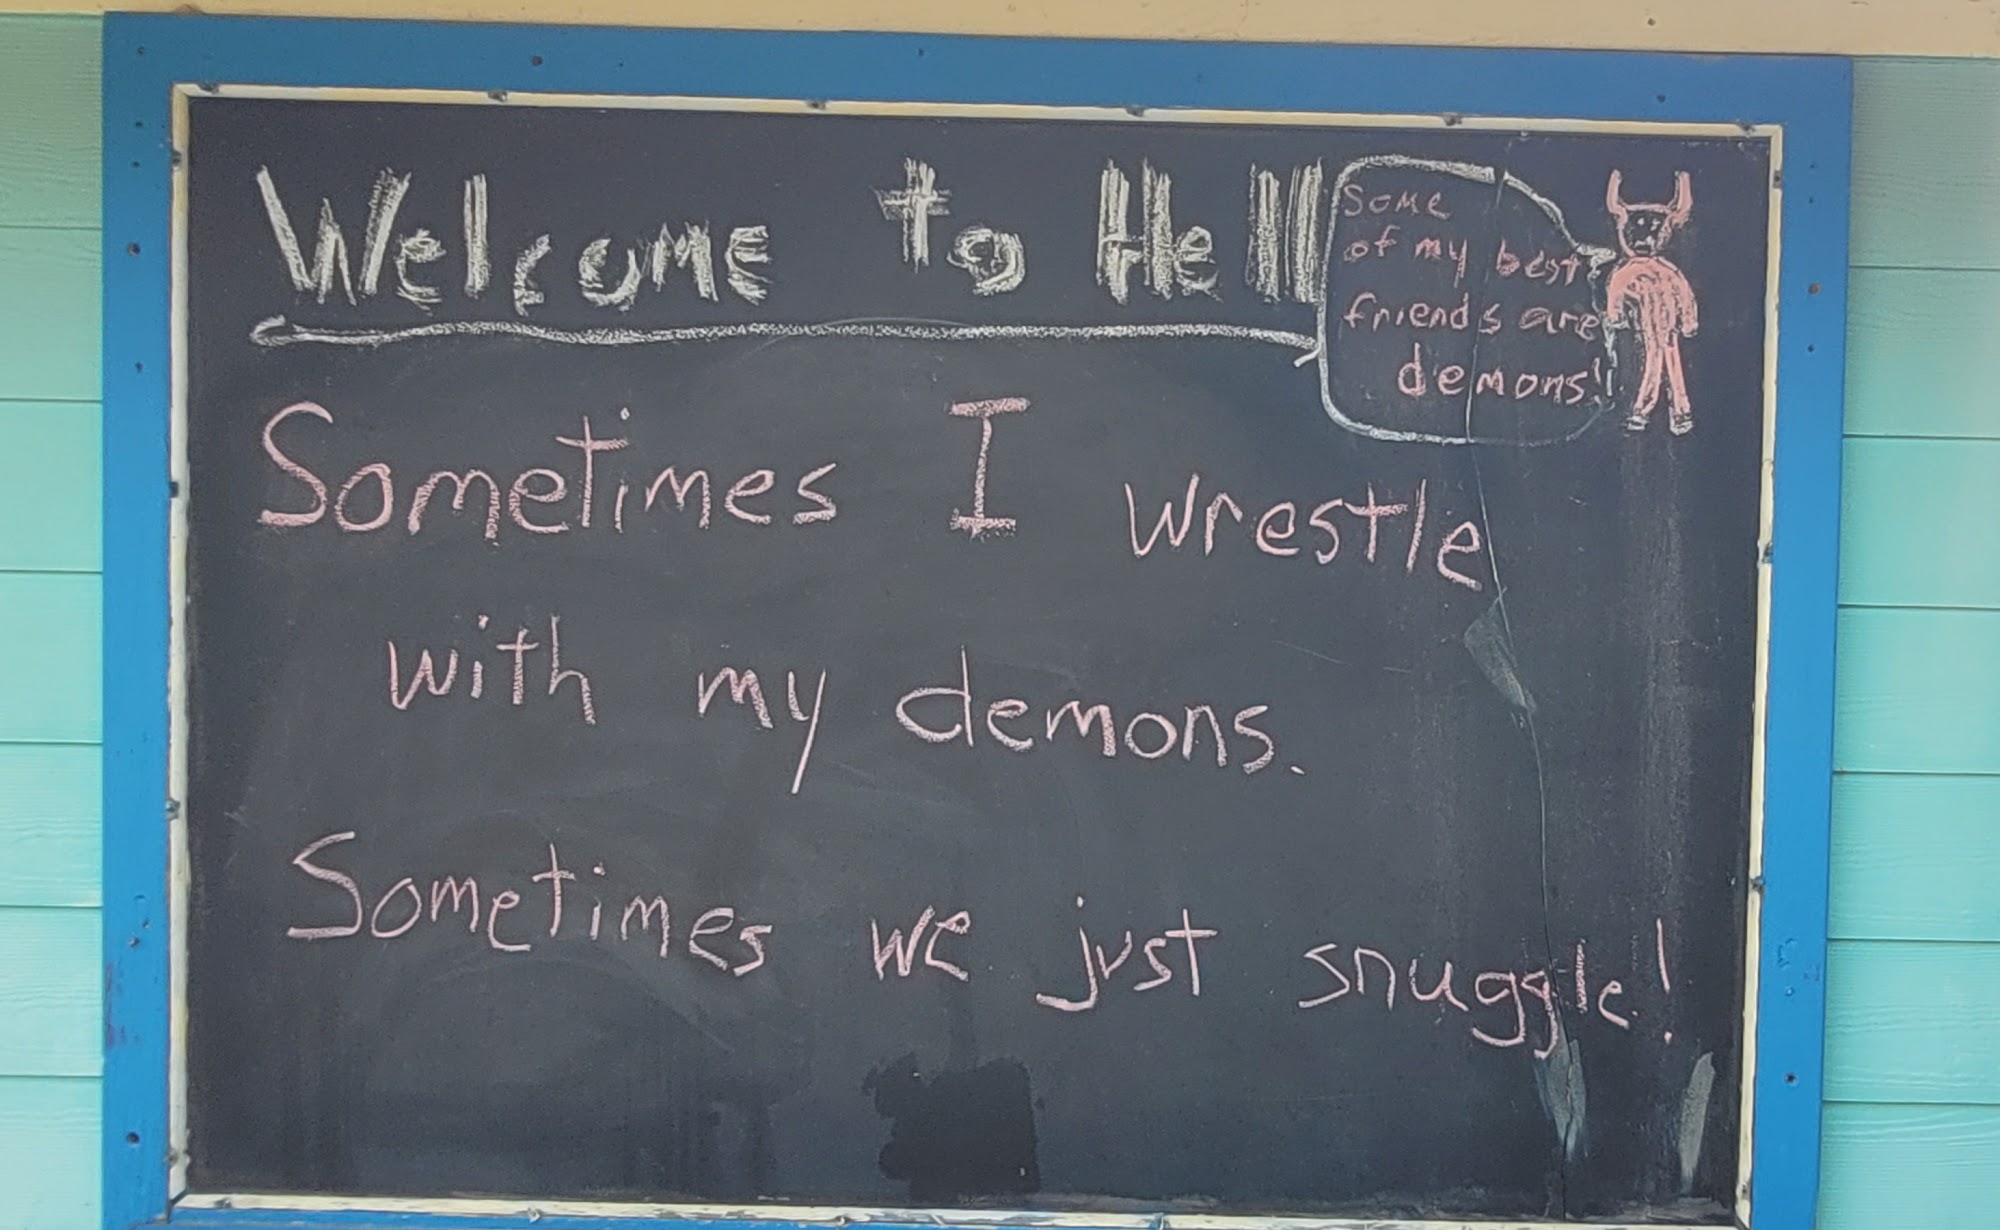 Welcome to Hell
Some
of my best
friends are
demons!
Sometimes I wrestle
with my demons.
Sometimes we just snuggle!